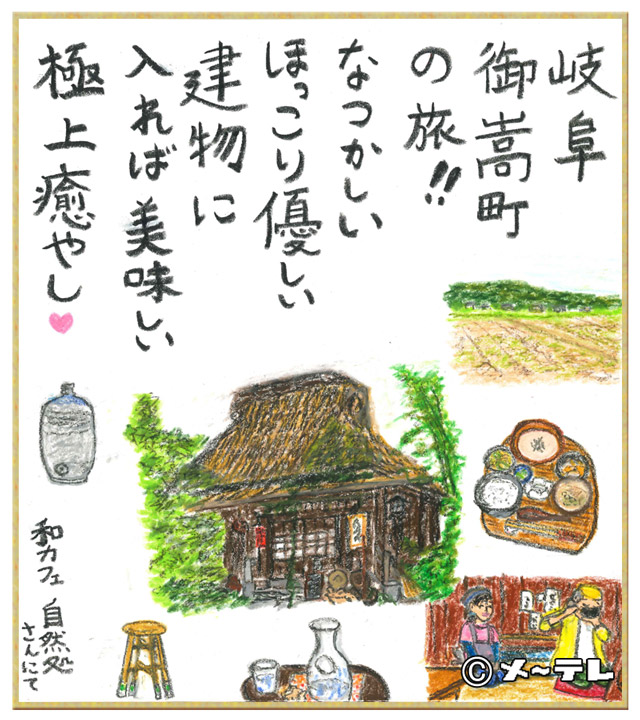 岐阜
御嵩町
の旅!!
なつかしい
ほっこり優しい
建物に
入れば美味しい
極上癒やし♥
和カフェ 自然処
さんにて
©メ~テレ